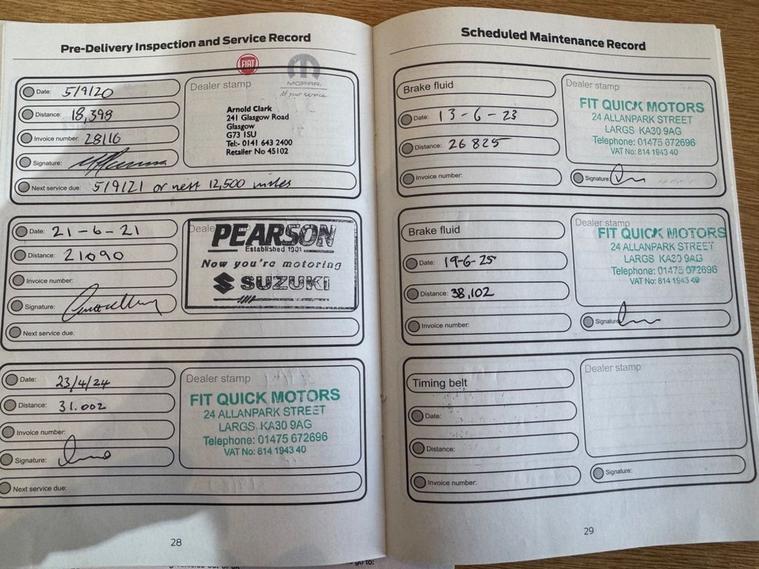 Pre-Delivery Inspection and Service Record
FIAT
MOPAR
Date: 5/9/20
Distance: 18,398
Invoice number: 28116
Signature:
Next service due: 5/9/21 or next 12,500 miles
Dealer stamp
Arnold Clark
241 Glasgow Road
Glasgow
G73 1SU
Tel:- 0141 643 2400
Retailer No 45102
Date: 21-6-21
Distance: 21090
Invoice number:
Signature:
Next service due:
PEARSON
Established 1901
Now you're motoring
SUZUKI
Date: 23/4/24
Distance: 31.002
Invoice number:
Signature:
Next service due:
Dealer stamp
FIT QUICK MOTORS
24 ALLANPARK STREET
LARGS KA30 9AG
Telephone: 01475 672696
VAT No: 814 1943 40
28
Scheduled Maintenance Record
Brake fluid
Date: 13-6-23
Distance: 26825
Invoice number:
Dealer stamp
FIT QUICK MOTORS
24 ALLANPARK STREET
LARGS KA30 9AG
Telephone: 01475 672696
VAT No: 814 1943 40
Signature:
Brake fluid
Date: 19-6-25
Distance: 38,102
Invoice number:
Dealer stamp
FIT QUICK MOTORS
24 ALLANPARK STREET
LARGS KA30 9AG
Telephone: 01475 672696
VAT No: 814 1943 40
Signature:
Timing belt
Date:
Distance:
Invoice number:
Dealer stamp
Signature:
29